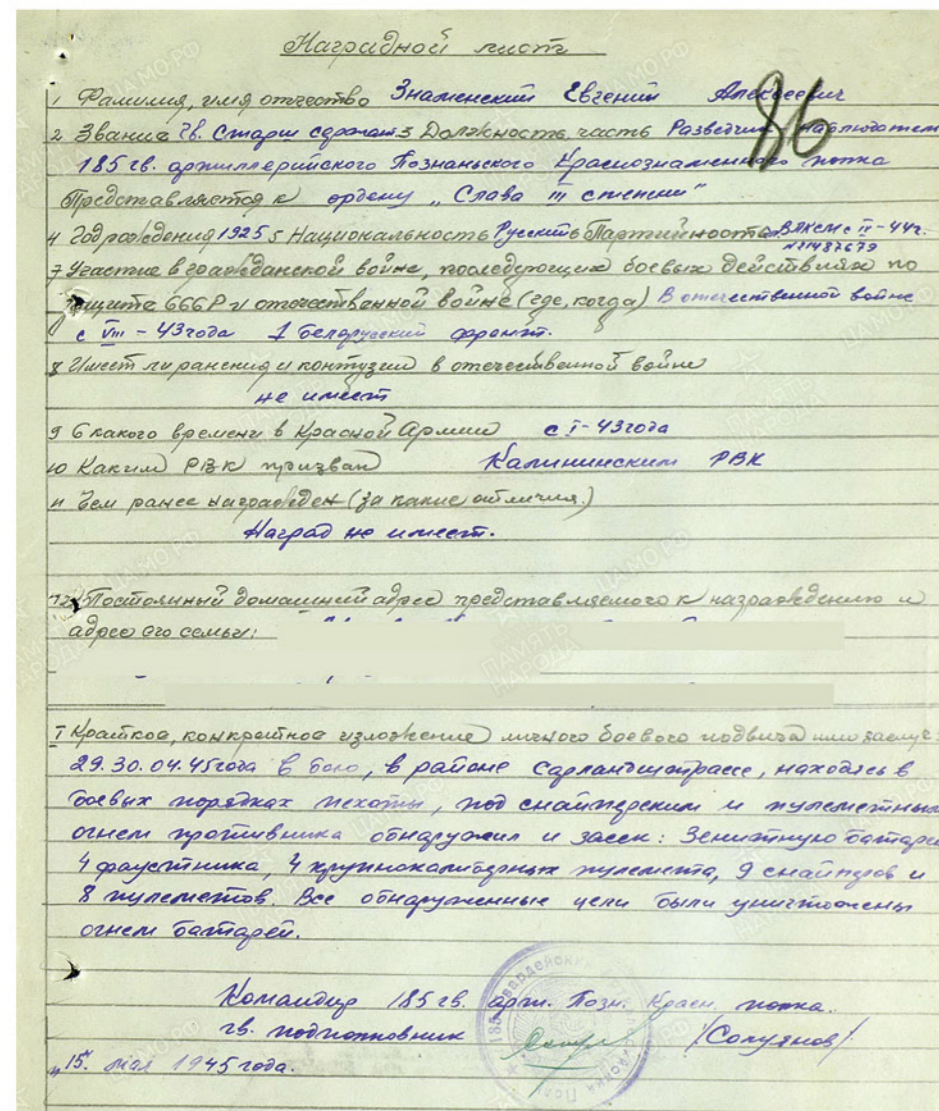 Наградной лист
86
1 Фамилия, имя отчество Знаменский Евгений Алексеевич
2 Звание гв. Старш сержант 3 Должность, часть Разведчик наблюдатель
185 гв. артиллерийского Познаньского Краснознаменного полка
Представляется к ордену „Слава III степени"
4 Год рождения 1925 5 Национальность Русский 6 Партийность ВЛКСМ с II-44г.
№21487679
7 Участие в гражданской войне, последующих боевых действиях по
защите СССР и отечественной войне (где, когда) В отечественной войне
с VIII-43 года 1 белорусский фронт.
8 Имеет ли ранения и контузии в отечественной войне
не имеет
9 С какого времени в Красной Армии с I-43 года
10 Каким РВК призван Калининским РВК
11 Чем ранее награжден (за какие отличия.)
Наград не имеет.
12 Постоянный домашний адрес представляемого к награждению и
адрес его семьи:
I Краткое, конкретное изложение личного боевого подвига или заслуг:
29.30.04.45 года в бою, в районе Сарландштрассе, находясь в
боевых порядках пехоты, под снайперским и пулеметным
огнем противника обнаружил и засек: Зенитную батарею
4 фаустника, 4 крупнокалиберных пулемета, 9 снайперов и
8 пулеметов. Все обнаруженные цели были уничтожены
огнем батарей.
Командир 185 гв. арт. Позн. Красн. полка.
гв. подполковник /Солуянов/
„15" мая 1945 года.
ПАМЯТЬ НАРОДА
ЦАМО.РФ